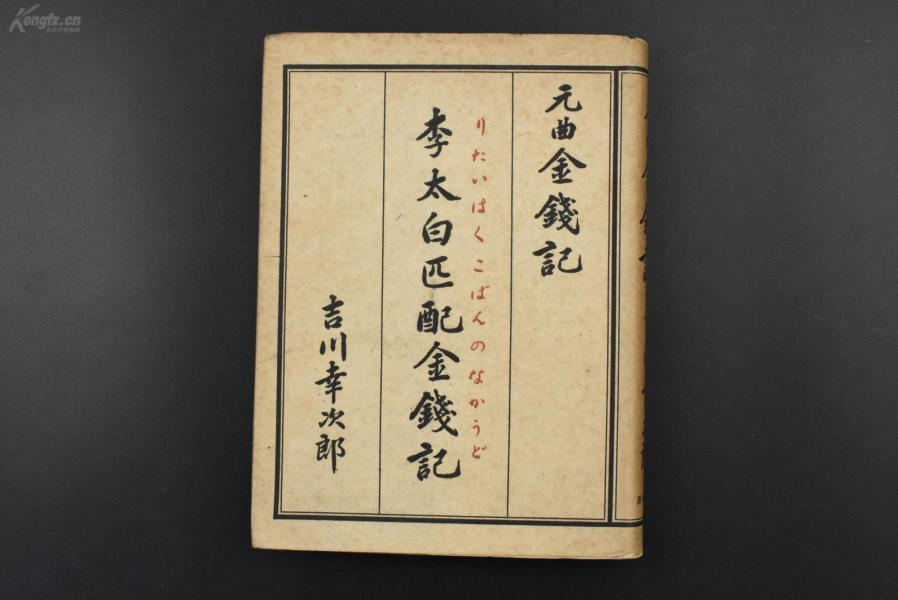 元曲金錢記
りたいはくこばんのなかうど
李太白匹配金錢記
吉川幸次郎
Kongfz.cn